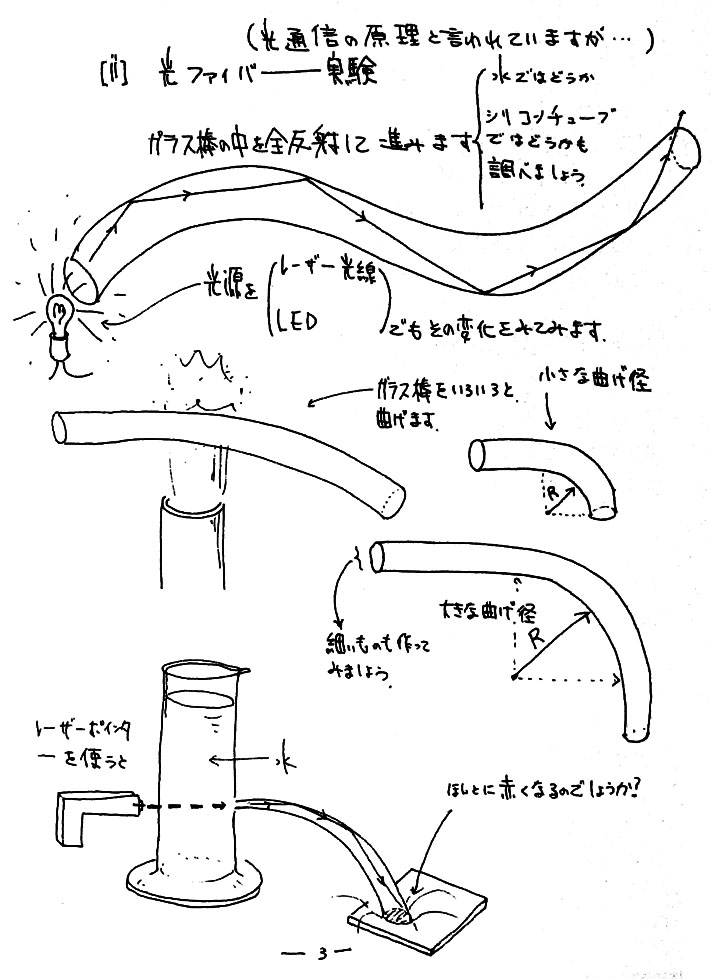 (光通信の原理と言われていますが…)
[ii] 光ファイバー――実験
水ではどうか
シリコンチューブ
ではどうかも
調べましょう.
ガラス棒の中を全反射して進みます
光源を
レーザー光線
LED
でもその変化をみてみます.
ガラス棒をいろいろと
曲げます.
小さな曲げ径
R
大きな曲げ径
R
細いものも作って
みましょう.
レーザーポインタ
ーを使うと
水
ほんとに赤くなるのでしょうか?
― 3 ―